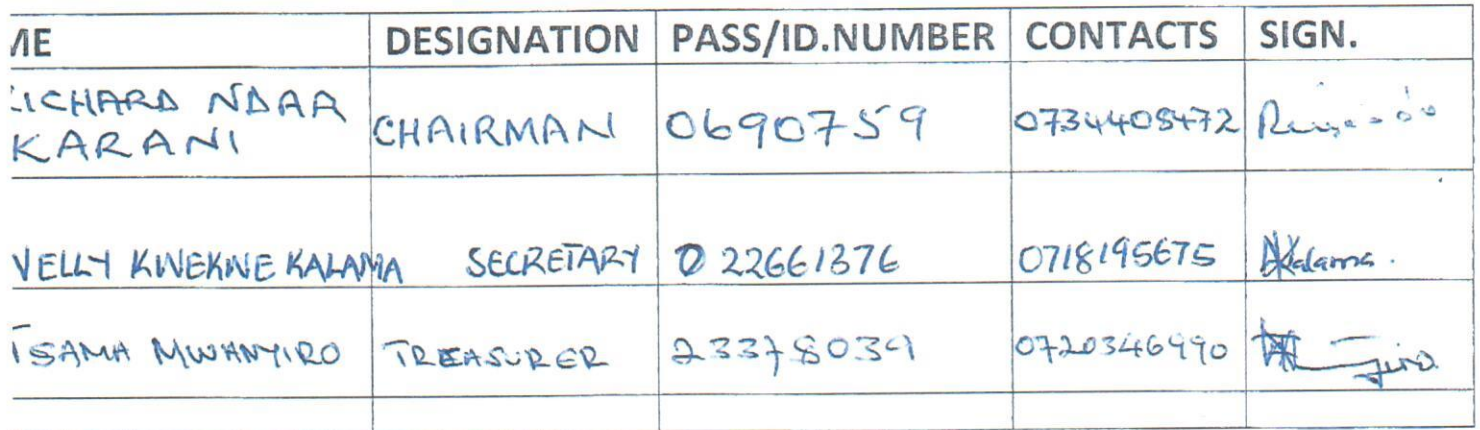 ME DESIGNATION PASS/ID.NUMBER CONTACTS SIGN.
RICHARD NDAA
KARANI CHAIRMAN 0690759 0734408472
VELLY KWEKWE KALAMA SECRETARY 0 22661376 0718195675 Kalama.
TSAMA MWANYIRO TREASURER 23378039 0720346990